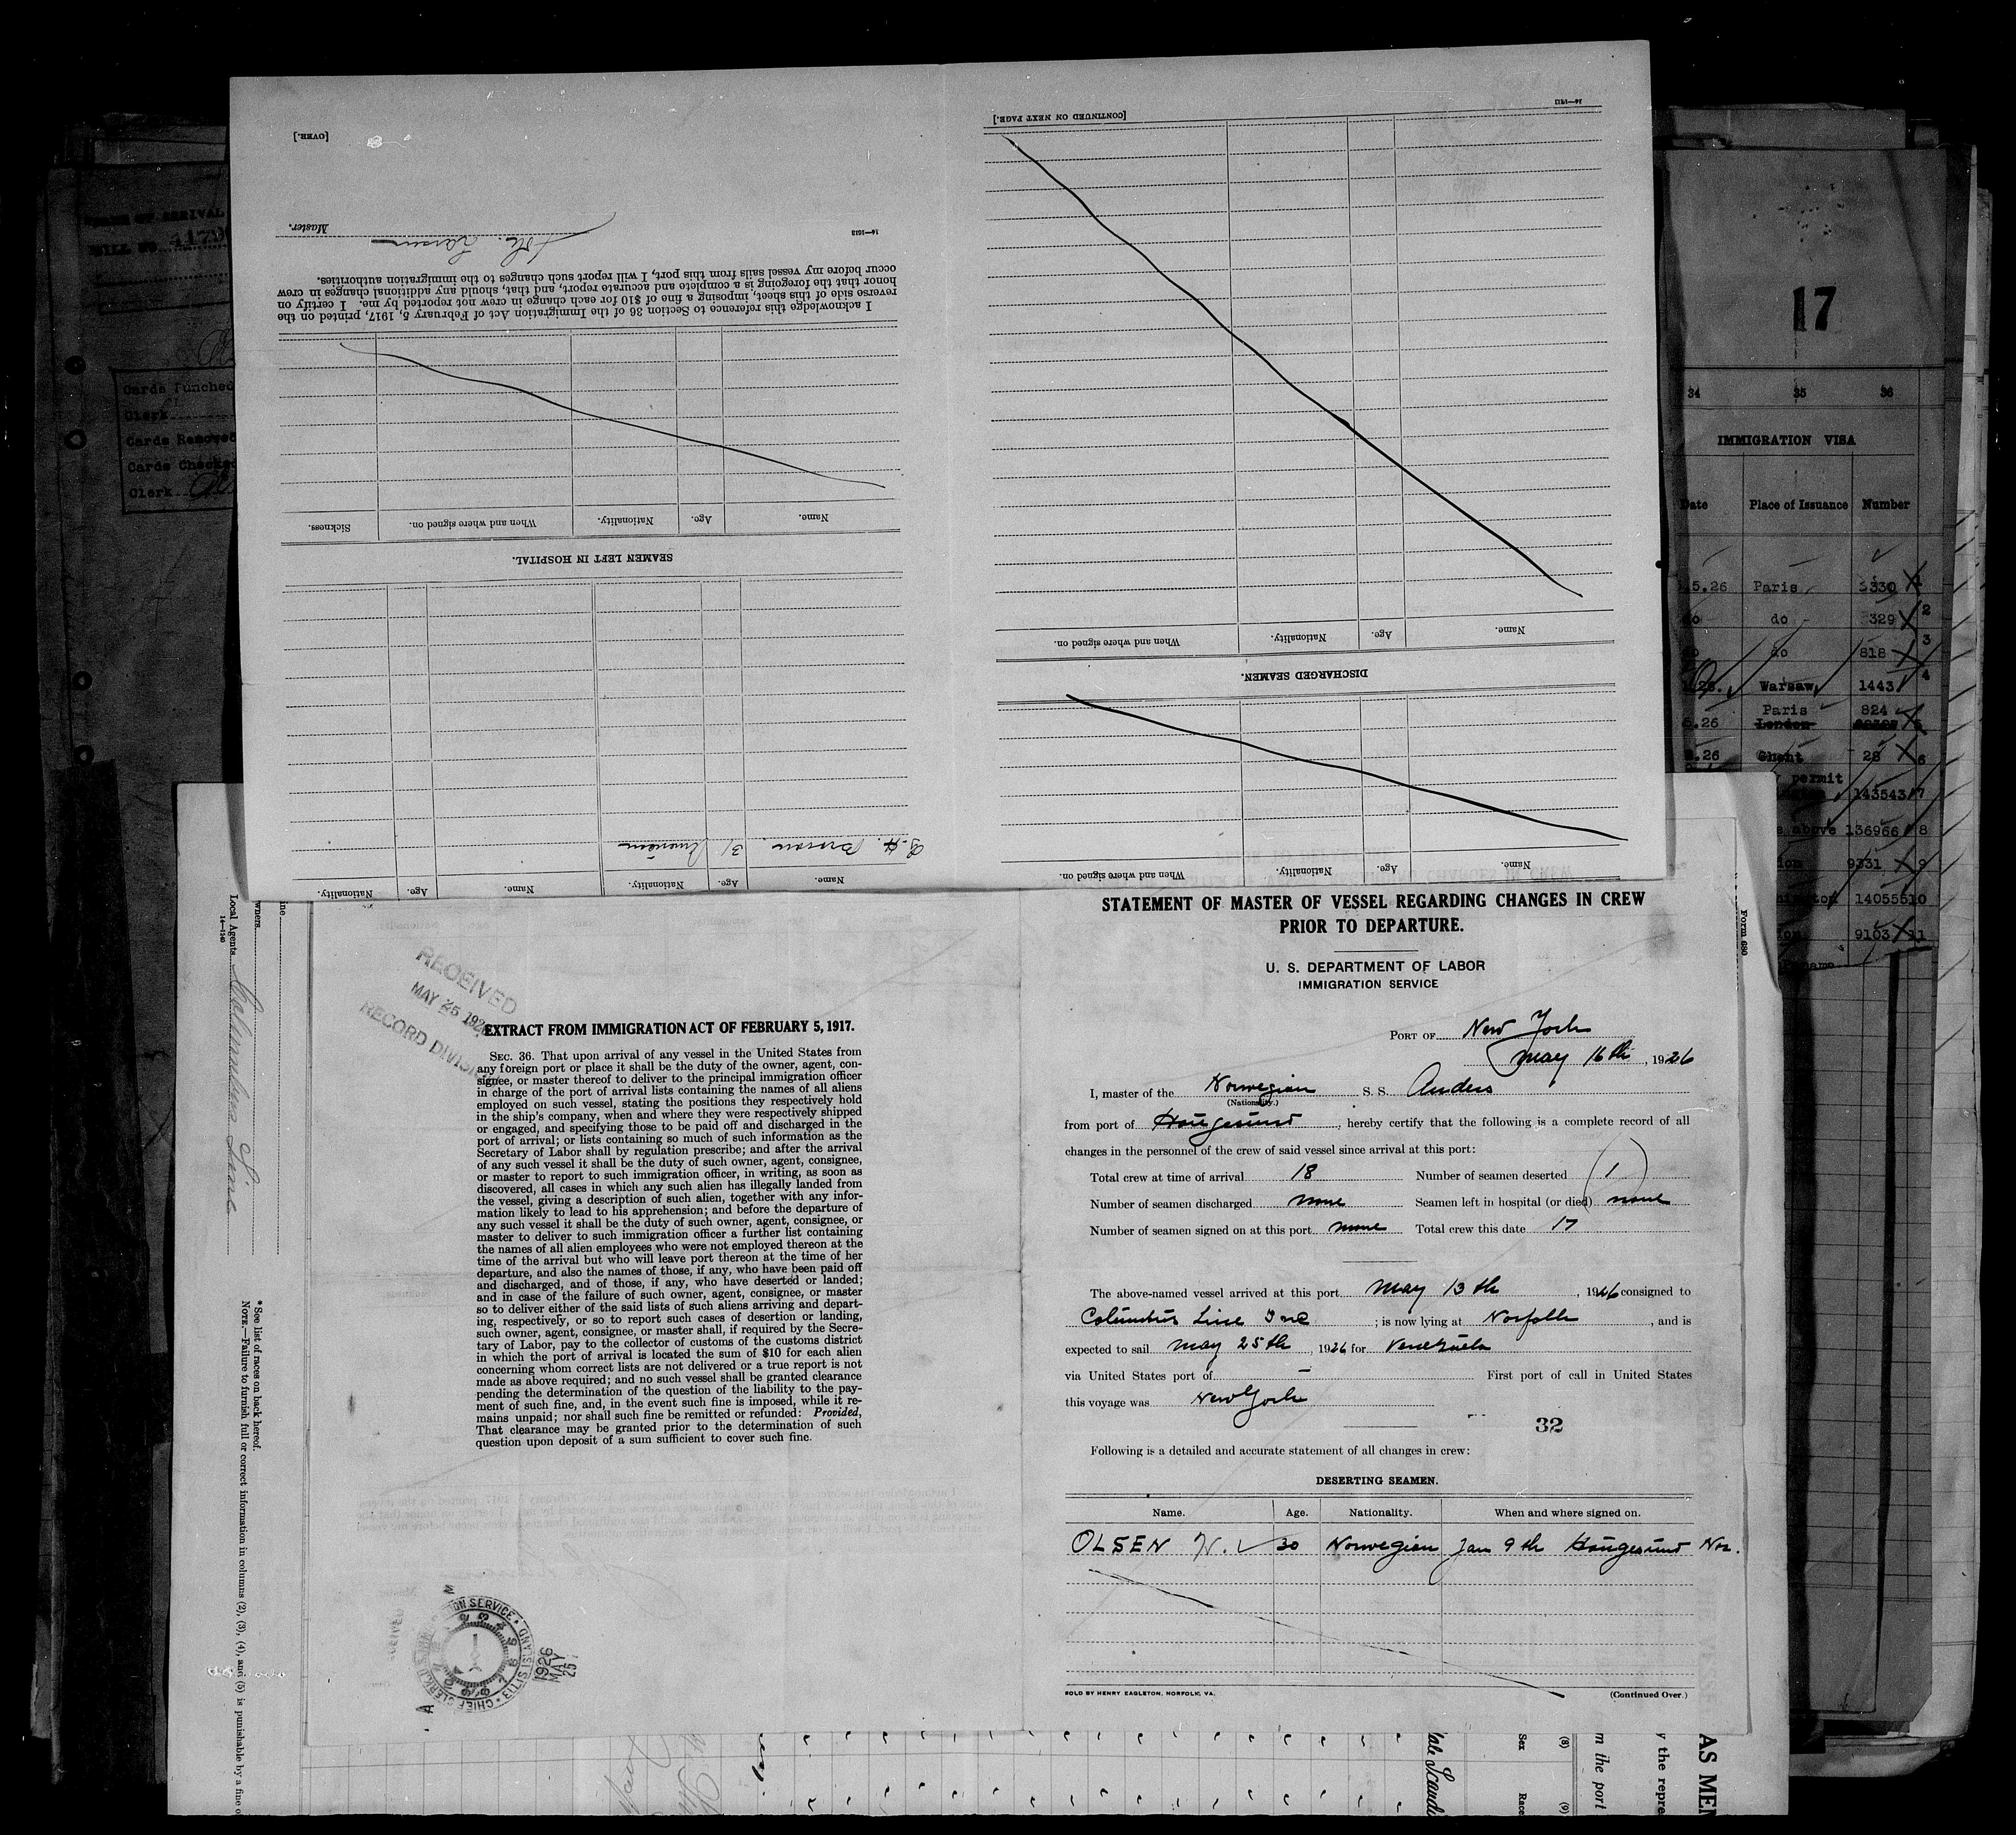 [OVER.]
14—1613
Master.
I acknowledge this reference to Section 36 of the Immigration Act of February 5, 1917, printed on the
reverse side of this sheet, imposing a fine of $10 for each change in crew not reported by me. I certify on
honor that the foregoing is a complete and accurate report, and that, should any additional changes in crew
occur before my vessel sails from this port, I will report such changes to the immigration authorities.
Name. Age. Nationality. When and where signed on. Sickness.
SEAMEN LEFT IN HOSPITAL.
31 American
Name. Age. Nationality. Name. Age. Nationality.
14—1911
[CONTINUED ON NEXT PAGE.]
Name. Age. Nationality. When and where signed on.
DISCHARGED SEAMEN.
Name. Age. Nationality. When and where signed on.
Cards Punched
Clerk
Cards Removed
Cards Checked
Clerk
17
34 35 36
IMMIGRATION VISA
Date Place of Issuance Number
5.26 Paris 330 1
do do 329 2
do do 818 3
26. Warsaw 1443 4
Paris 824
6.26 London 5
.26 Ghent 28 6
permit
143543 7
as above 136966 8
9331 9
140555 10
9103 11
Local Agents Columbus Line
14—1240
* See list of races on back hereof.
NOTE.—Failure to furnish full or correct information in columns (2), (3), (4), and (5) is punishable by a fine of
RECEIVED
MAY 25 1926
RECORD DIVISION
EXTRACT FROM IMMIGRATION ACT OF FEBRUARY 5, 1917.
SEC. 36. That upon arrival of any vessel in the United States from
any foreign port or place it shall be the duty of the owner, agent, con-
signee, or master thereof to deliver to the principal immigration officer
in charge of the port of arrival lists containing the names of all aliens
employed on such vessel, stating the positions they respectively hold
in the ship's company, when and where they were respectively shipped
or engaged, and specifying those to be paid off and discharged in the
port of arrival; or lists containing so much of such information as the
Secretary of Labor shall by regulation prescribe; and after the arrival
of any such vessel it shall be the duty of such owner, agent, consignee,
or master to report to such immigration officer, in writing, as soon as
discovered, all cases in which any such alien has illegally landed from
the vessel, giving a description of such alien, together with any infor-
mation likely to lead to his apprehension; and before the departure of
any such vessel it shall be the duty of such owner, agent, consignee, or
master to deliver to such immigration officer a further list containing
the names of all alien employees who were not employed thereon at the
time of the arrival but who will leave port thereon at the time of her
departure, and also the names of those, if any, who have been paid off
and discharged, and of those, if any, who have deserted or landed;
and in case of the failure of such owner, agent, consignee, or master
so to deliver either of the said lists of such aliens arriving and depart-
ing, respectively, or so to report such cases of desertion or landing,
such owner, agent, consignee, or master shall, if required by the Secre-
tary of Labor, pay to the collector of customs of the customs district
in which the port of arrival is located the sum of $10 for each alien
concerning whom correct lists are not delivered or a true report is not
made as above required; and no such vessel shall be granted clearance
pending the determination of the question of the liability to the pay-
ment of such fine, and, in the event such fine is imposed, while it re-
mains unpaid; nor shall such fine be remitted or refunded: Provided,
That clearance may be granted prior to the determination of such
question upon deposit of a sum sufficient to cover such fine.
1926
MAY
25
Form 680
STATEMENT OF MASTER OF VESSEL REGARDING CHANGES IN CREW
PRIOR TO DEPARTURE.
U. S. DEPARTMENT OF LABOR
IMMIGRATION SERVICE
PORT OF New York
May 16th, 1926
I, master of the Norwegian S. S. Anders
(Nationality.)
from port of Haugesund, hereby certify that the following is a complete record of all
changes in the personnel of the crew of said vessel since arrival at this port:
Total crew at time of arrival 18 Number of seamen deserted 1
Number of seamen discharged none Seamen left in hospital (or died) none
Number of seamen signed on at this port none Total crew this date 17
The above-named vessel arrived at this port May 13th, 1926 consigned to
Columbus Line Inc; is now lying at Norfolk, and is
expected to sail May 25th, 1926 for Venezuela
via United States port of — First port of call in United States
this voyage was New York
32
Following is a detailed and accurate statement of all changes in crew:
DESERTING SEAMEN.
Name. Age. Nationality. When and where signed on.
OLSEN N. 30 Norwegian Jan 9th Haugesund Nor.
SOLD BY HENRY EAGLETON, NORFOLK, VA.
(Continued Over.)
Sex
Race
(8)
(9)
m the port
y the repre
AS MEM